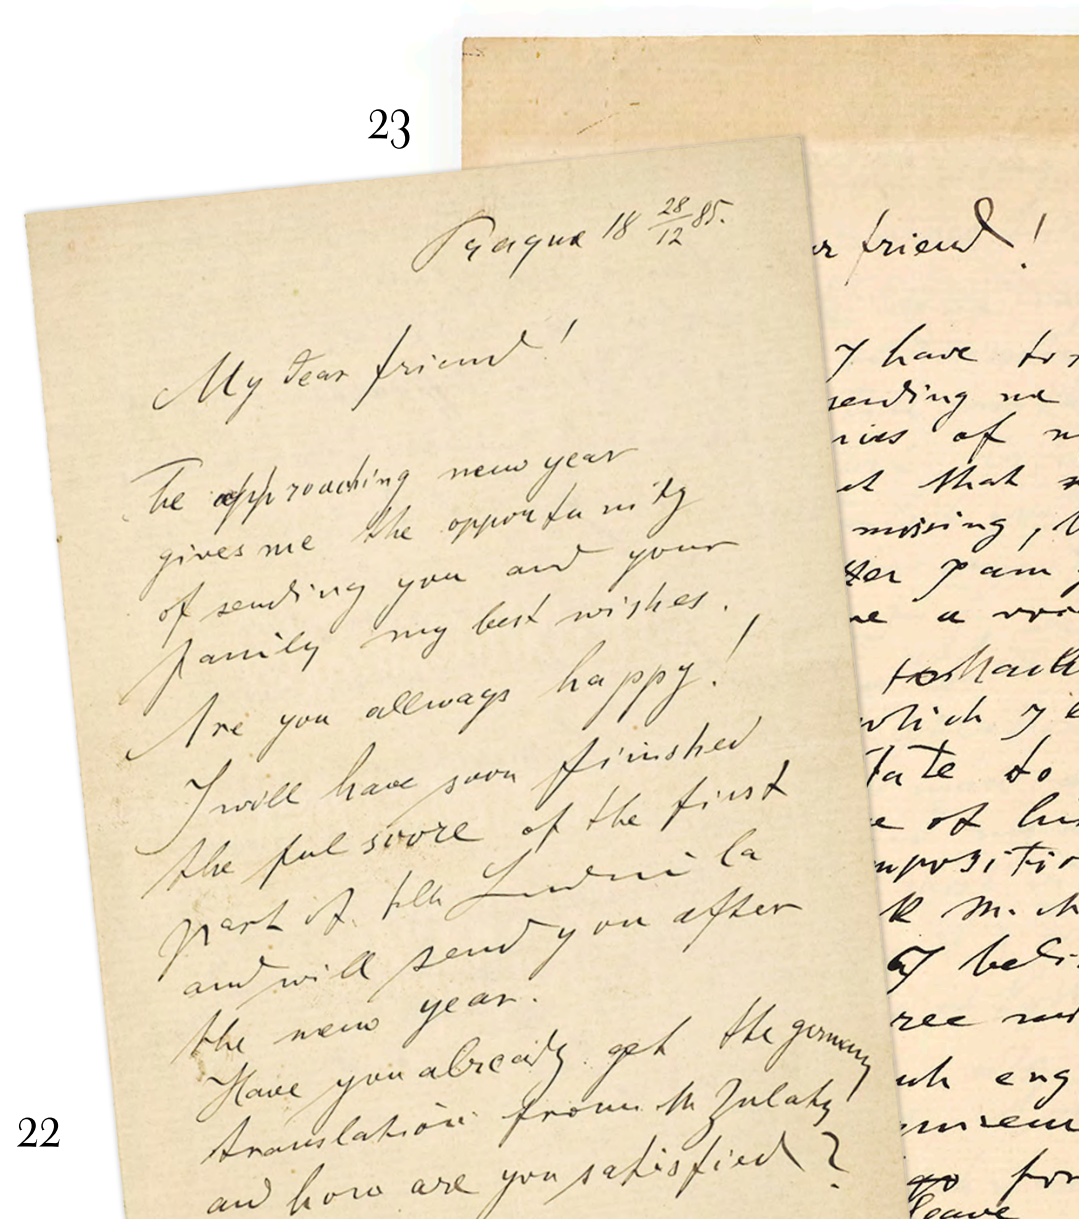 23
Prague 18 28/12 85.
My dear friend!
The approaching new year
gives me the opportunity
of sending you and your
family my best wishes.
Are you allways happy!
I will have soon finished
the ful score of the first
part of the Ludmila
and will send you after
the new year.
Have you already get the germany
translation from M Zulaty
and how are you satisfied?
22
friend!
I have to
sending me
of
that
missing,
a
to
which I
to
of
M.
I beli
eng
go for
leave